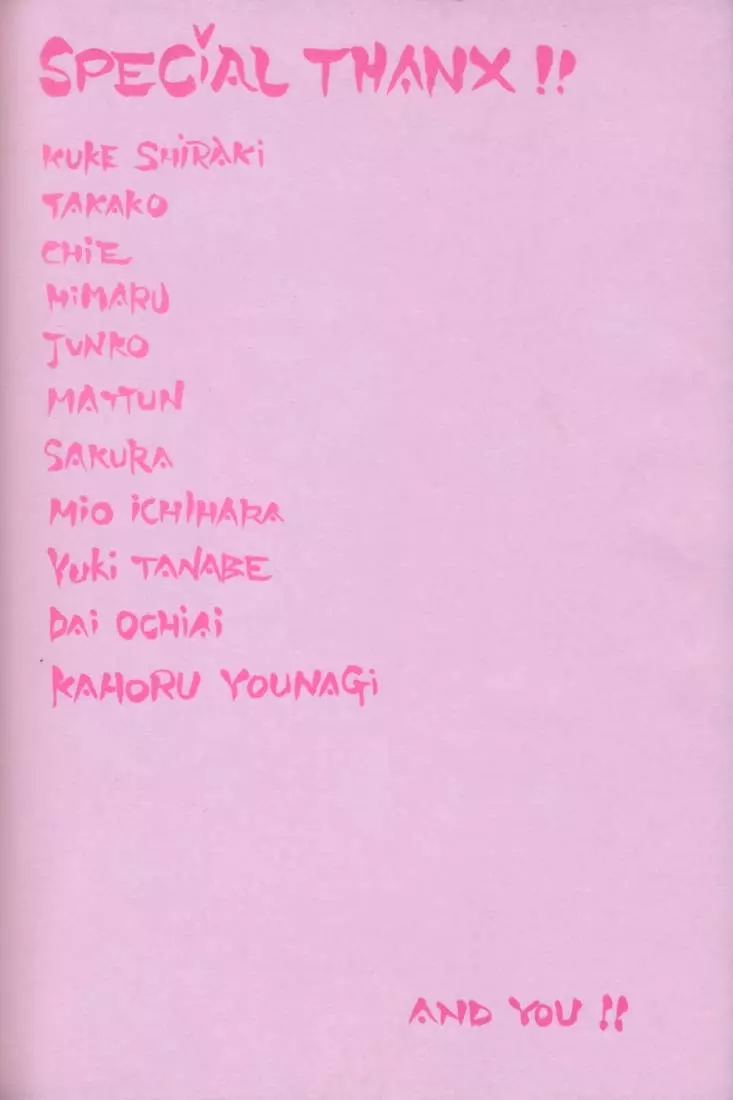 SPECIAL THANX!!
KUKE SHIRAKI
TAKAKO
CHIE
MIMARU
JUNKO
MATTUN
SAKURA
MIO ICHIHARA
YUKI TANABE
DAI OCHIAI
KAHORU YOUNAGI
AND YOU!!